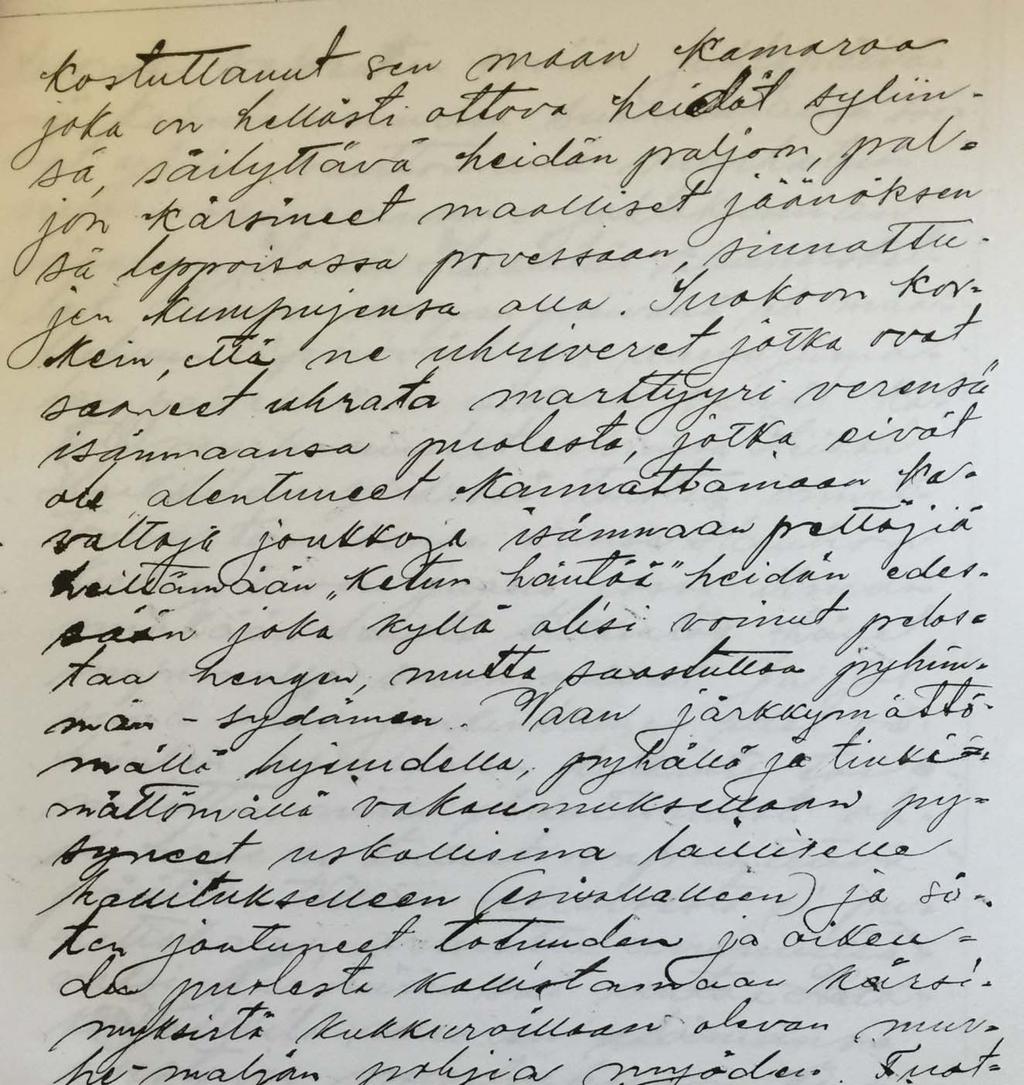 kostuttanut sen maan kamaraa
joka on hellästi ottava heidät syliin-
sä, säilyttävä heidän paljon, pal-
jon kärsineet maalliset jäänöksen
sä leppoisassa povessaan, siunattu-
jen kumpujensa alla. Suokoon kor-
kein, että ne uhriveret jotka ovat
saaneet uhrata marttyyri verensä
isänmaansa puolesta, jotka eivät
ole alentuneet kannattamaan ka-
valtaja joukkoja isänmaan pettäjiä
heittämään „ketun häntää" heidän edes-
sään joka kyllä olisi voinut pelas-
taa hengen, mutta saastuttaa pyhim-
män - sydämen. Vaan järkkymättö-
mällä hyveudella, pyhällä ja tinki-
mättömällä vakaumuksellaan py-
syneet uskollisina lailliselle
hallitukselleen (esivallalleen) ja si-
ten joutuneet totuuden ja oikeu-
den puolesta kallistamaan kärsi-
myksistä kukkuroillaan olevan mur-
he-maljan pohjia myöden. Tuot-